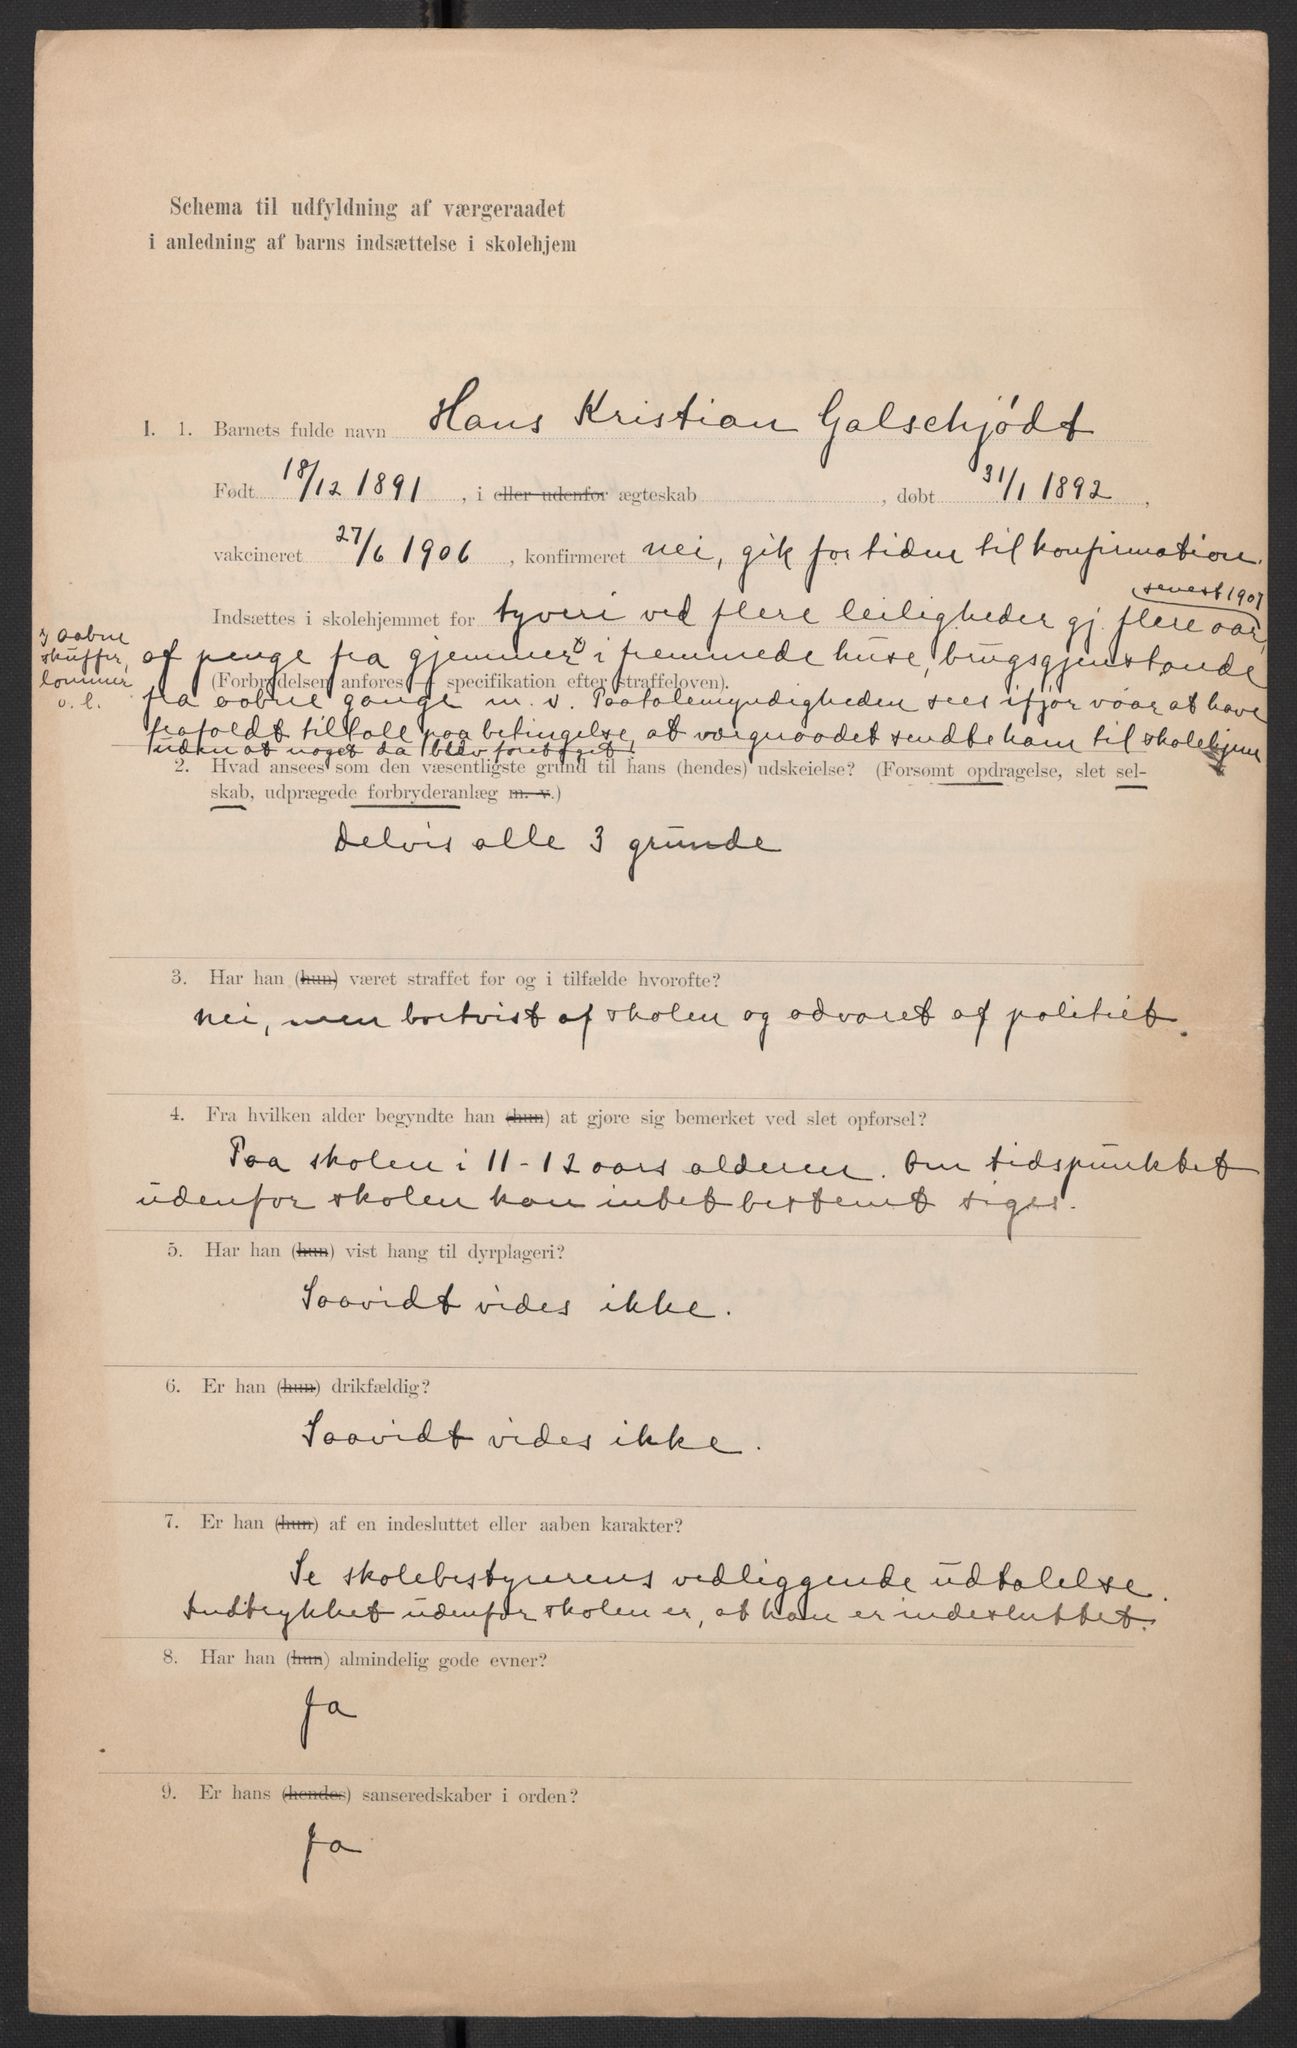 Schema til udfyldning af værgeraadet
i anledning af barns indsættelse i skolehjem
I. 1. Barnets fulde navn Hans Kristian Galschjødt
Født 18/12 1891, i eller udenfor ægteskab , døbt 31/1 1892,
vakcineret 27/6 1906, konfirmeret nei, gik for tiden til konfirmation.
senest 1907
Indsættes i skolehjemmet for tyveri ved flere leiligheder gj. flere aar,
aabne
skuffer,
lommer
o. l.
af penge fra gjemmer i fremmede huse, brugsgjenstande
(Forbrydelsen anføres — specifikation efter straffeloven).
fra aabne gange m. v. Paatalemyndigheden sees ifjor vaar at have
frafaldt tiltale paa betingelse, at værgeraadet sendte ham til skolehjem
uden at noget da blev foretaget.
2. Hvad ansees som den væsentligste grund til hans (hendes) udskeielse? (Forsømt opdragelse, slet sel-
skab, udprægede forbryderanlæg m. v.)
Delvis alle 3 grunde
3. Har han (hun) været straffet før og i tilfælde hvorofte?
Nei, men bortvist af skolen og advaret af politiet.
4. Fra hvilken alder begyndte han (hun) at gjøre sig bemerket ved slet opførsel?
Paa skolen i 11-12 aars alderen. Om tidspunktet
udenfor skolen kan intet bestemt siges.
5. Har han (hun) vist hang til dyrplageri?
Saavidt vides ikke.
6. Er han (hun) drikfældig?
Saavidt vides ikke.
7. Er han (hun) af en indesluttet eller aaben karakter?
Se skolebestyrerens vedliggende udtalelse.
Indtrykket udenfor skolen er, at han er indesluttet.
8. Har han (hun) almindelig gode evner?
Ja
9. Er hans (hendes) sanseredskaber i orden?
Ja